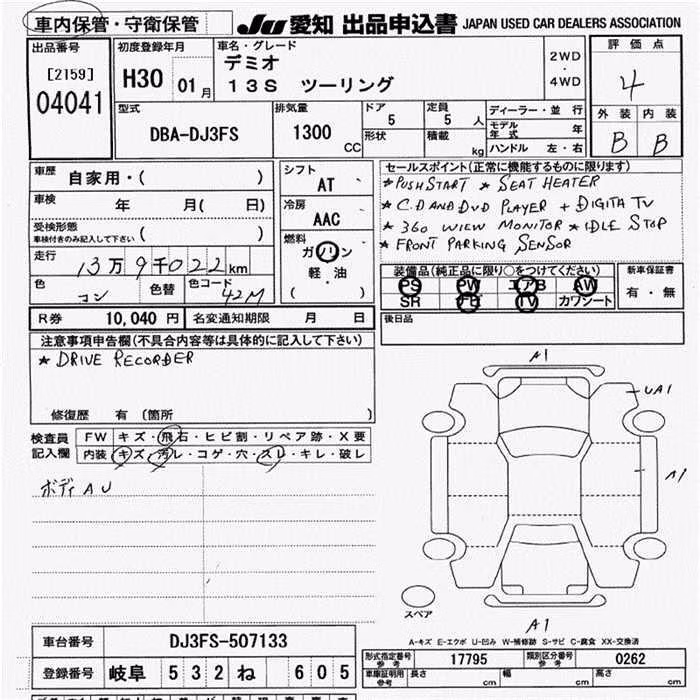 車内保管・守衛保管
JU 愛知 出品申込書 JAPAN USED CAR DEALERS ASSOCIATION
出品番号
[2159]
04041
初度登録年月
H30 01月
車名・グレード
デミオ
13S ツーリング
2WD
・
4WD
評価点
4
外装 内装
B B
型式
DBA-DJ3FS
排気量
1300 CC
ドア
5
形状
定員
5 人
積載
kg
ディーラー・並行
モデル年式 年
ハンドル 左・右
車歴 自家用・( )
車検 年 月( 日)
受検形態
車検付きのみ記入して下さい ( )
走行 13万9千022km
色 コン
色替
色コード 42M
シフト
AT
冷房
AAC
燃料
ガソリン
軽・油
( )
セールスポイント(正常に機能するものに限ります)
*PUSH START * SEAT HEATER
* C.D AND DVD PLAYER + DIGITA TV
* 360 WIEW MONITOR * IDLE STOP
* FRONT PARKING SENSOR
装備品(純正品に限り○をつけてください)
PS PW エアB AW
SR TV カワシート
新車保証書
有・無
R券 10,040 円 名変通知期限 月 日
後日品
注意事項申告欄(不具合内容等は具体的に記入して下さい)
* DRIVE RECORDER
修復歴 有(箇所 )
検査員記入欄
FW キズ・飛石・ヒビ割・リペア跡・X要
内装 キズ・汚レ・コゲ・穴・スレ・キレ・破レ
ボディAU
A1
UA1
A1
スペア
A1
A-キズ E-エクボ U-凹み W-補修跡 S-サビ C-腐食 XX-交換済
車台番号 DJ3FS-507133
登録番号 岐阜 532 ね 605
形式指定番号 参考 17795
類別区分番号 参考 0262
車庫証明用 参考 長さ cm 幅 cm 高さ cm